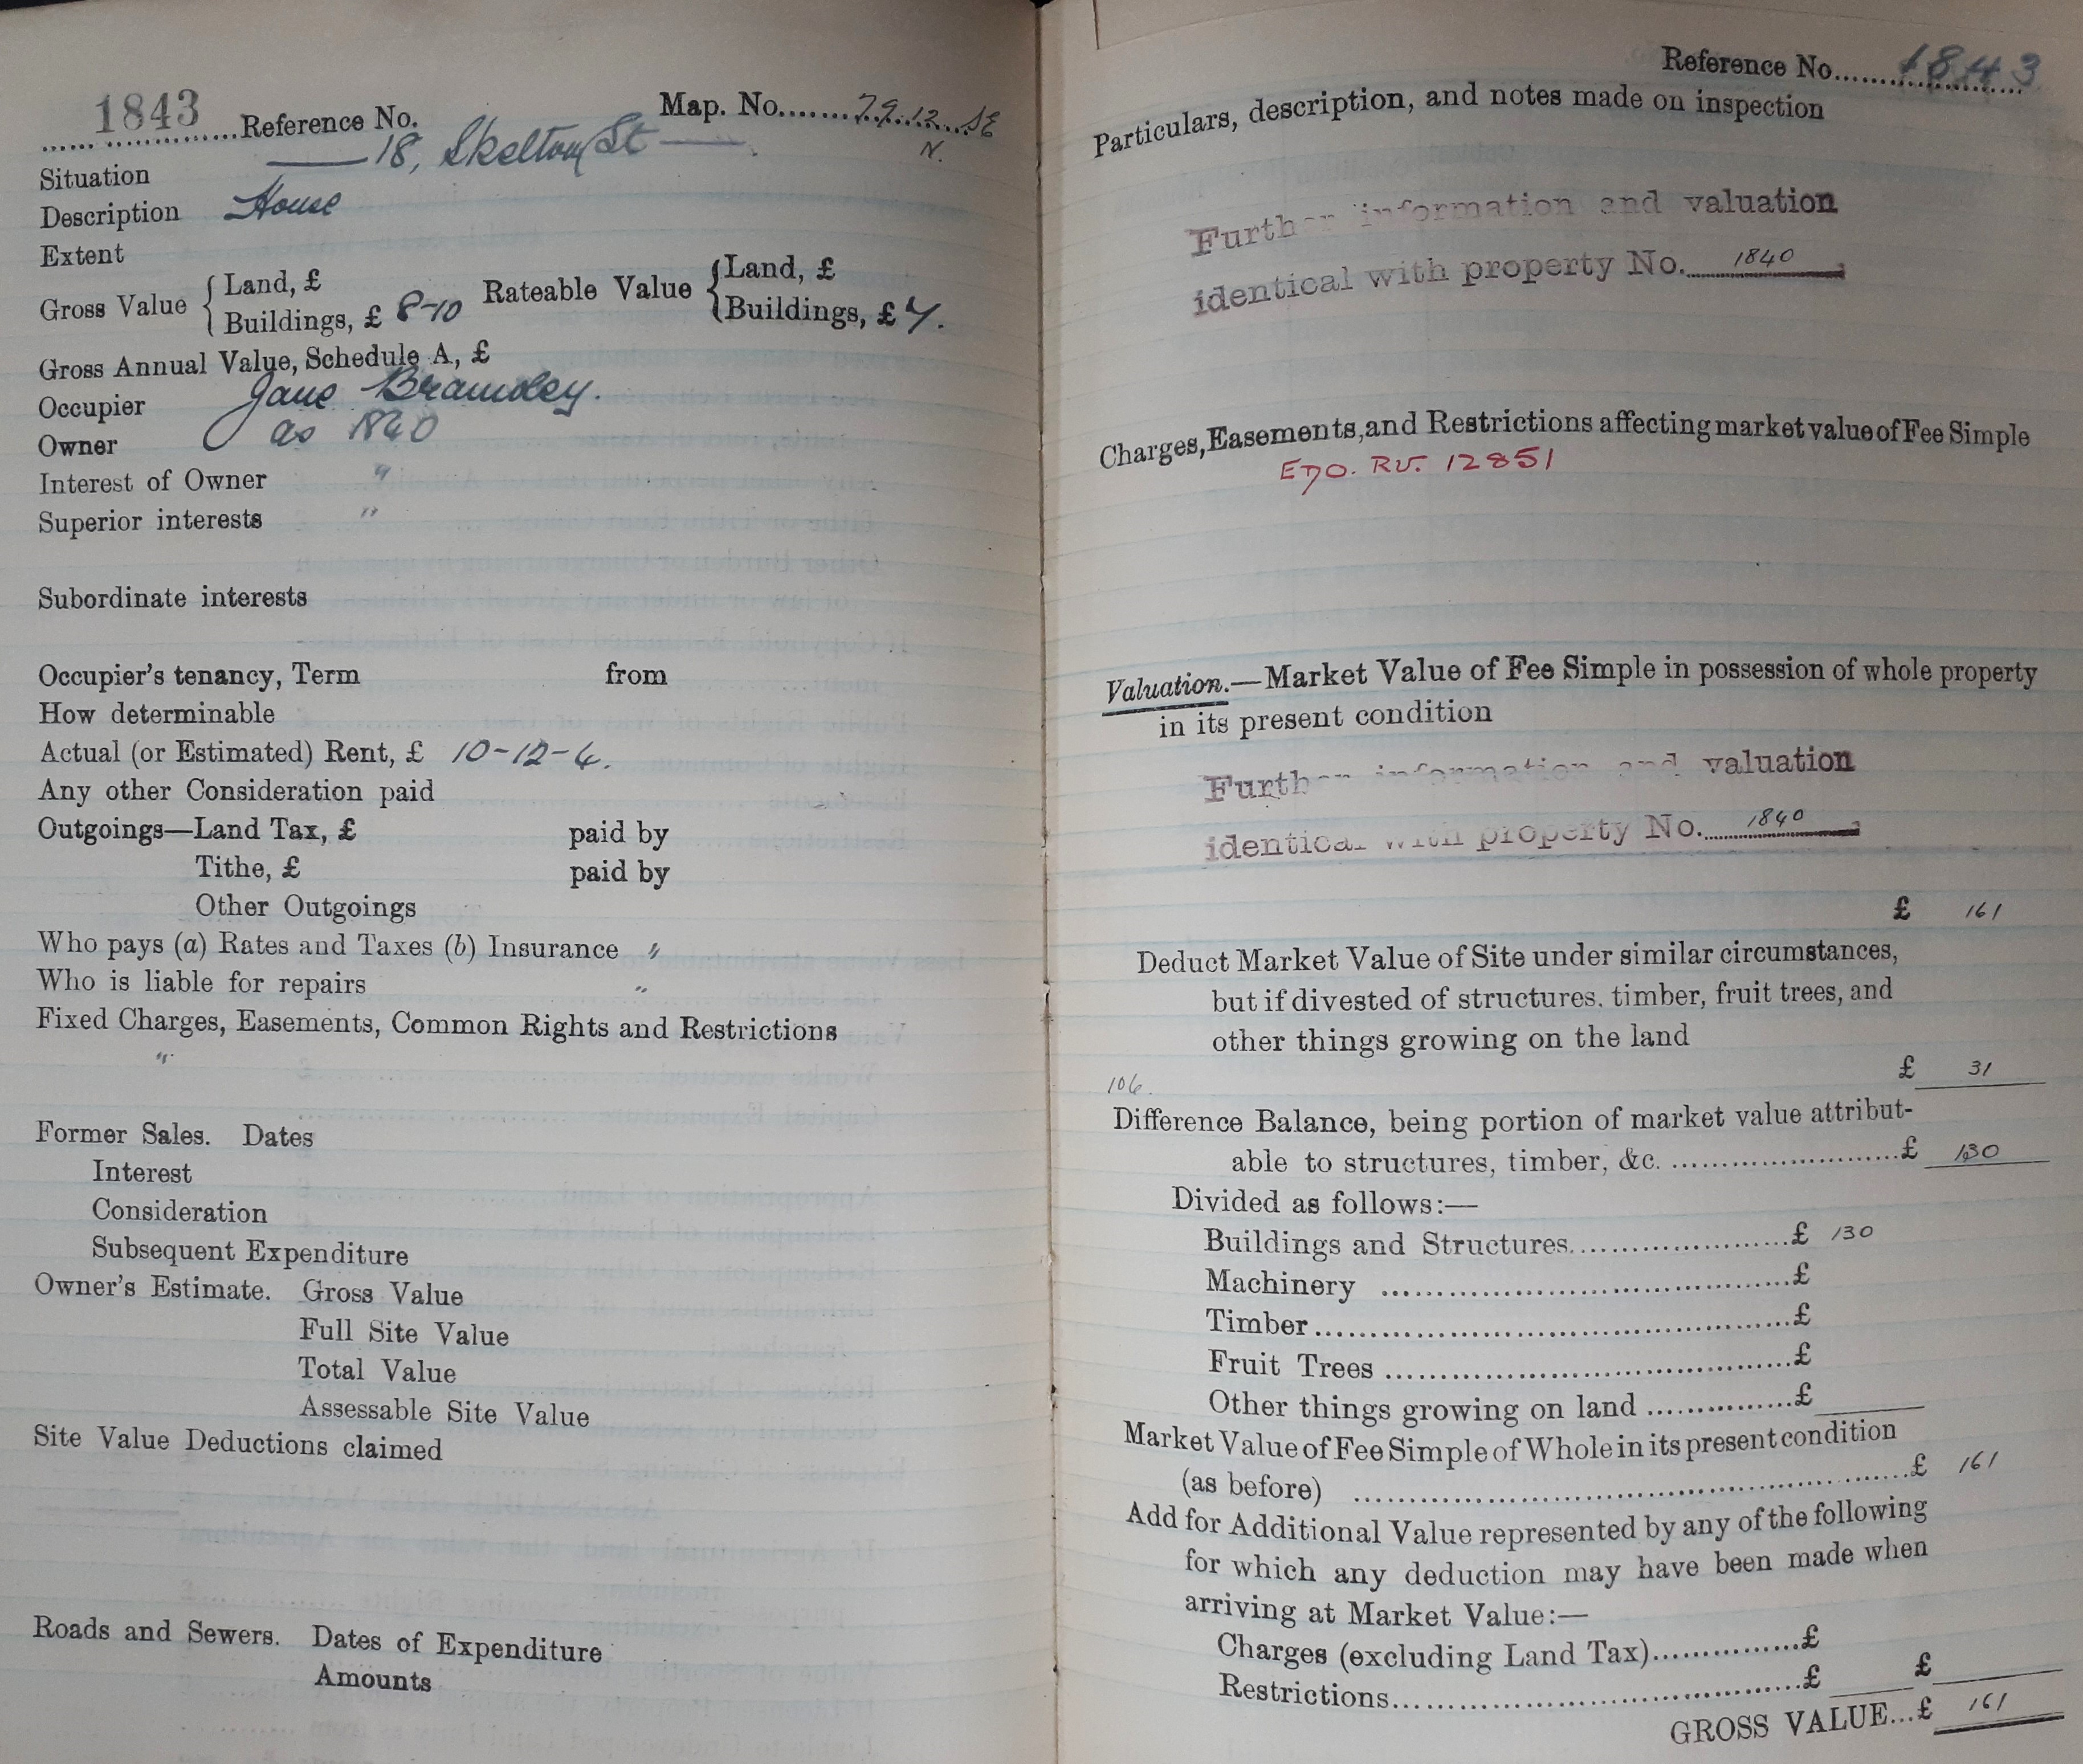 1843 Reference No. Map. No. 79.12 SE
N.
Situation 18, Skelton St
Description House
Extent
Gross Value { Land, £ Rateable Value { Land, £
Buildings, £ 8-10 Buildings, £
Gross Annual Value, Schedule A, £
Occupier Jane Bramley.
Owner as 1840
Interest of Owner "
Superior interests "
Subordinate interests
Occupier's tenancy, Term from
How determinable
Actual (or Estimated) Rent, £ 10-12-4.
Any other Consideration paid
Outgoings—Land Tax, £ paid by
Tithe, £ paid by
Other Outgoings
Who pays (a) Rates and Taxes (b) Insurance "
Who is liable for repairs "
Fixed Charges, Easements, Common Rights and Restrictions
"
Former Sales. Dates
Interest
Consideration
Subsequent Expenditure
Owner's Estimate. Gross Value
Full Site Value
Total Value
Assessable Site Value
Site Value Deductions claimed
Roads and Sewers. Dates of Expenditure
Amounts
Reference No. 1843
Particulars, description, and notes made on inspection
Further information and valuation
identical with property No. 1840
Charges, Easements, and Restrictions affecting market value of Fee Simple
RV. 12851
Valuation.—Market Value of Fee Simple in possession of whole property
in its present condition
Further information and valuation
identical with property No. 1840
£ 161
Deduct Market Value of Site under similar circumstances,
but if divested of structures, timber, fruit trees, and
other things growing on the land
£ 31
106.
Difference Balance, being portion of market value attribut-
able to structures, timber, &c. £ 130
Divided as follows:—
Buildings and Structures £ 130
Machinery £
Timber £
Fruit Trees £
Other things growing on land £
Market Value of Fee Simple of Whole in its present condition
(as before) £ 161
Add for Additional Value represented by any of the following
for which any deduction may have been made when
arriving at Market Value:—
Charges (excluding Land Tax) £
Restrictions £ £
GROSS VALUE...£ 161